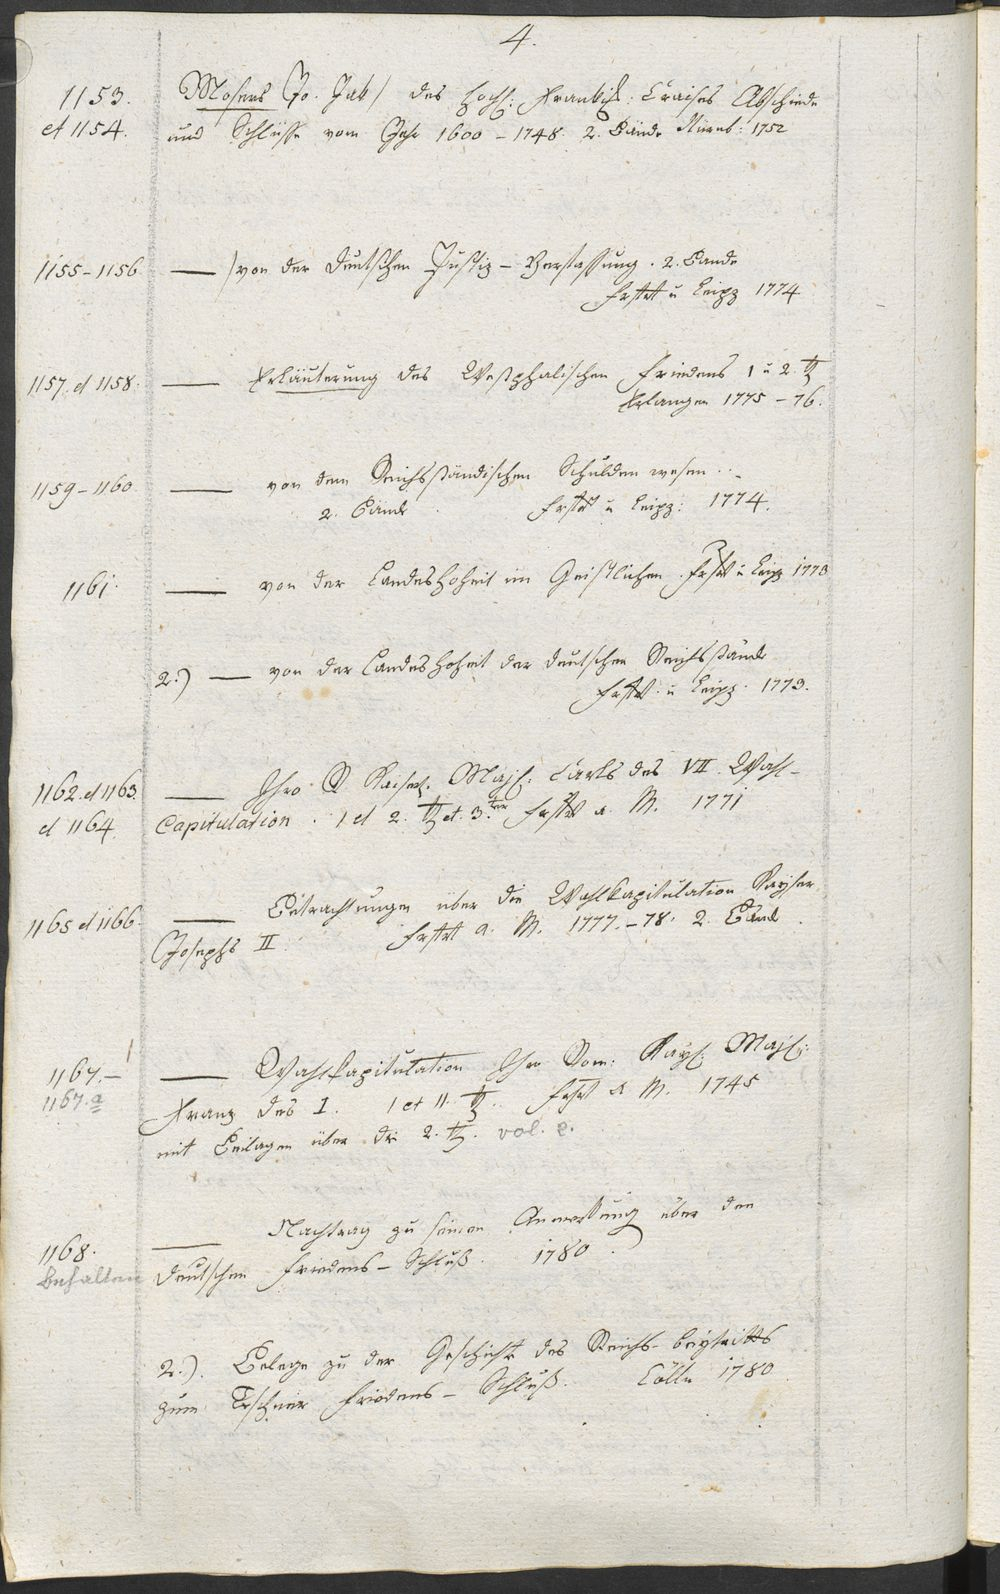 4.
1153. Mosers (Jo. Jak) des Hochf: Fränkisch: Craises Abschiede
et 1154. und Schlüsse vom Jahr 1600 - 1748. 2. Bände Nürnb: 1752
1155-1156 — von der deutschen Justiz-Verfassung. 2. Bande
Frfrt u Leipz 1774
1157. et 1158. — Erläuterung des Westphalischen Friedens 1 u 2
Erlangen 1775 - 76.
1159-1160 — von dem Reichsständischen Schulden wesen..
2. Bände Frfrt u Leipz: 1774.
1161. — von der Landeshoheit im Geistlichen. Frfrt u Leipz 1773
2.) — von der Landeshoheit der deutschen Reichsstände
Frfrt u Leipz. 1773.
1162. et 1163. — Ihro R Kaiserl. Majs. Carls des VII. Wahl-
et 1164. Capitulation. 1 et 2. et 3.ter Frfrt a M. 1771
1165 et 1166. — Betrachtungen über die Wahlkapitulation Kayser
Josephs II. Frfrt a. M. 1777.-78. 2. Bände
1167.- — Wahlkapitulation Ihro Rom: Kays: Majs:
1167.a Franz des I. 1 et II. Frfrt a M. 1745
mit Beilagen über die 2. vol. 2.
1168. — Nachtrag zu seinen Anmerkung über den
Behalten deutschen Friedens-Schluß. 1780.
2.). Belege zu der Geschichte des Reichs-beytritts
zum Teschner Friedens-Schluß. Cölln 1780